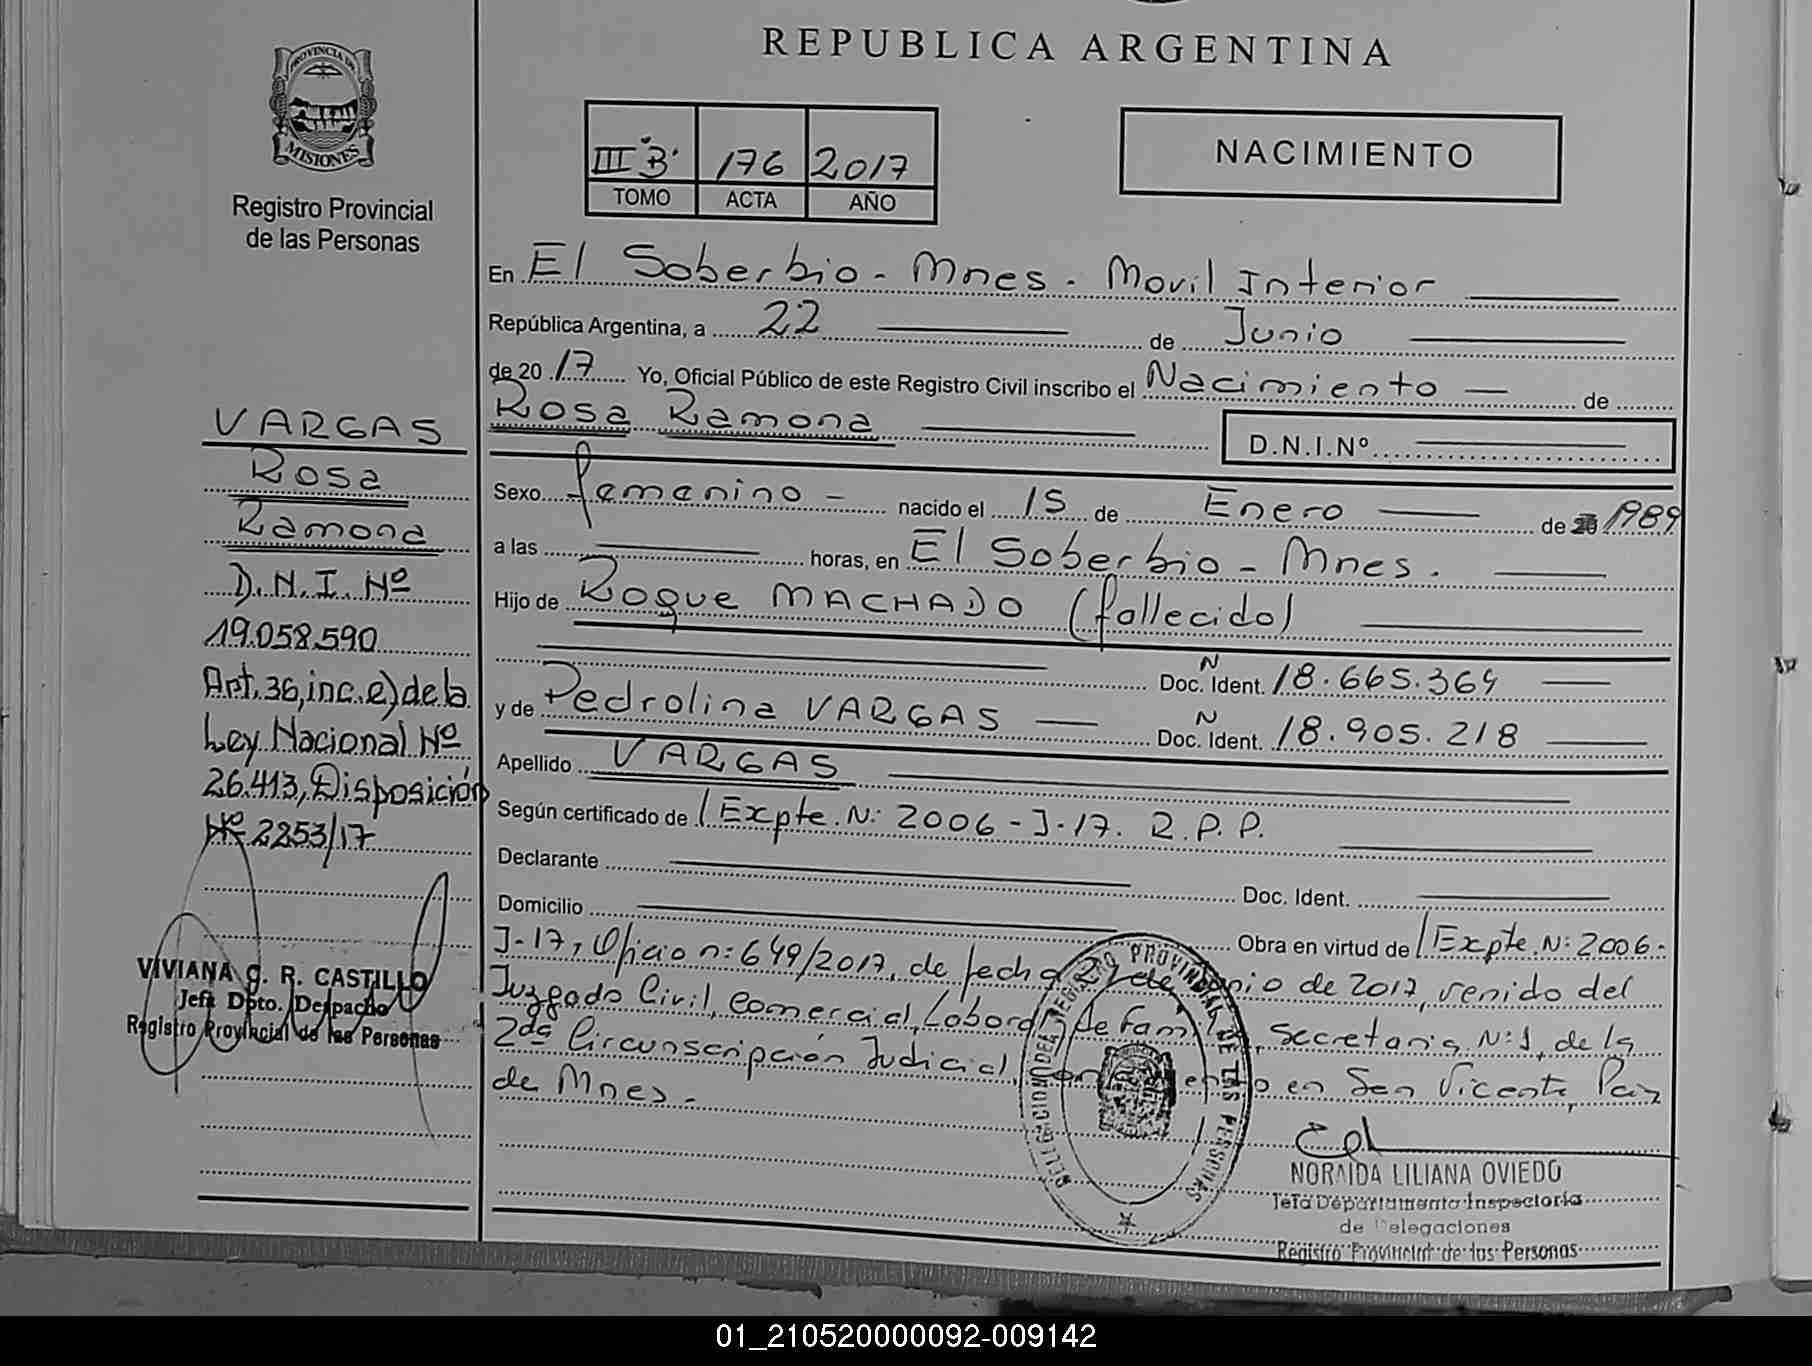 REPUBLICA ARGENTINA
PROVINCIA DE
MISIONES
Registro Provincial
de las Personas
III "B" 176 2017
TOMO ACTA AÑO
NACIMIENTO
En El Soberbio - Mnes. Movil Interior
República Argentina, a 22 de Junio
de 20 17 Yo, Oficial Público de este Registro Civil inscribo el Nacimiento de
Rosa Ramona D.N.I.Nº
Sexo femenino - nacido el 15 de Enero de 20 1989
a las horas, en El Soberbio - Mnes.
Hijo de Roque MACHADO (fallecido)
Doc. Ident. N 18.665.364
y de Pedrolina VARGAS Doc. Ident. N 18.905.218
Apellido VARGAS
Según certificado de / Expte. N: 2006 - J-17. R.P.P.
Declarante Doc. Ident.
Domicilio Obra en virtud de / Expte. N: 2006-
J-17, Oficio n: 649/2017, de fecha de de 2017, venido del
Juzgado Civil, Comercial, Laboral, de Familia, Secretaria N: 1, de la
2da Circunscripción Judicial, en San Vicente, Pcia
de Mnes.-
VARGAS
Rosa
Ramona
D.N.I. Nº
19.058.590
Art. 36, inc. e) de la
Ley Nacional Nº
26.413, Disposición
Nº 2253/17
VIVIANA G. R. CASTILLO
Jefa Dpto. Despacho
Registro Provincial de las Personas
DELEGACION DEL REGISTRO PROVINCIAL DE LAS PERSONAS
NORAIDA LILIANA OVIEDO
Jefa Departamento Inspectoría
de Delegaciones
Registro Provincial de las Personas
01_210520000092-009142